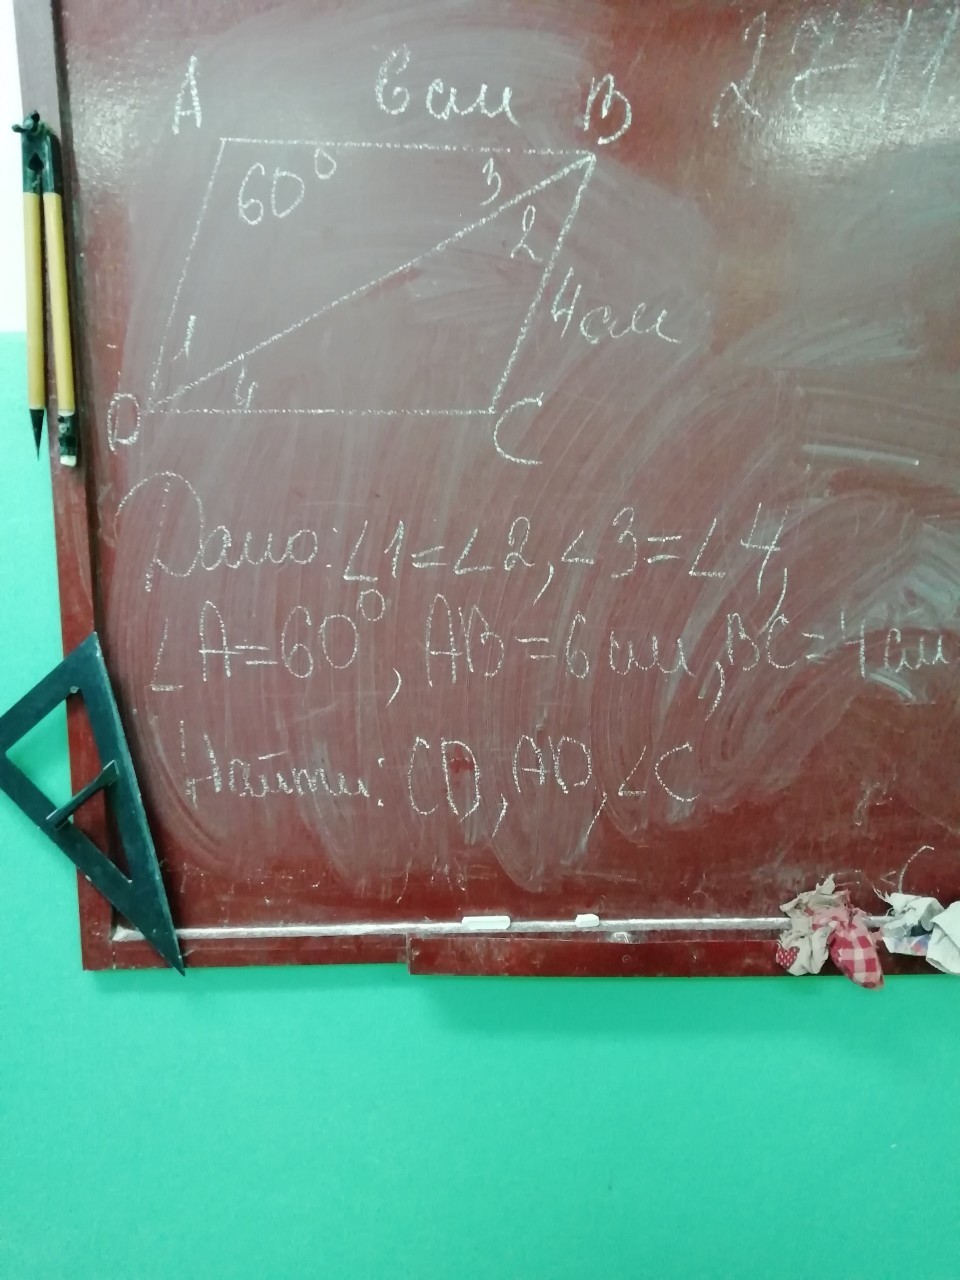 A 6 см B
60° 3
2
4 см
1
4
D
C
Дано: ∠1=∠2, ∠3=∠4,
∠A=60°, AB=6 см, BC=4 см
Найти: CD, AD, ∠C